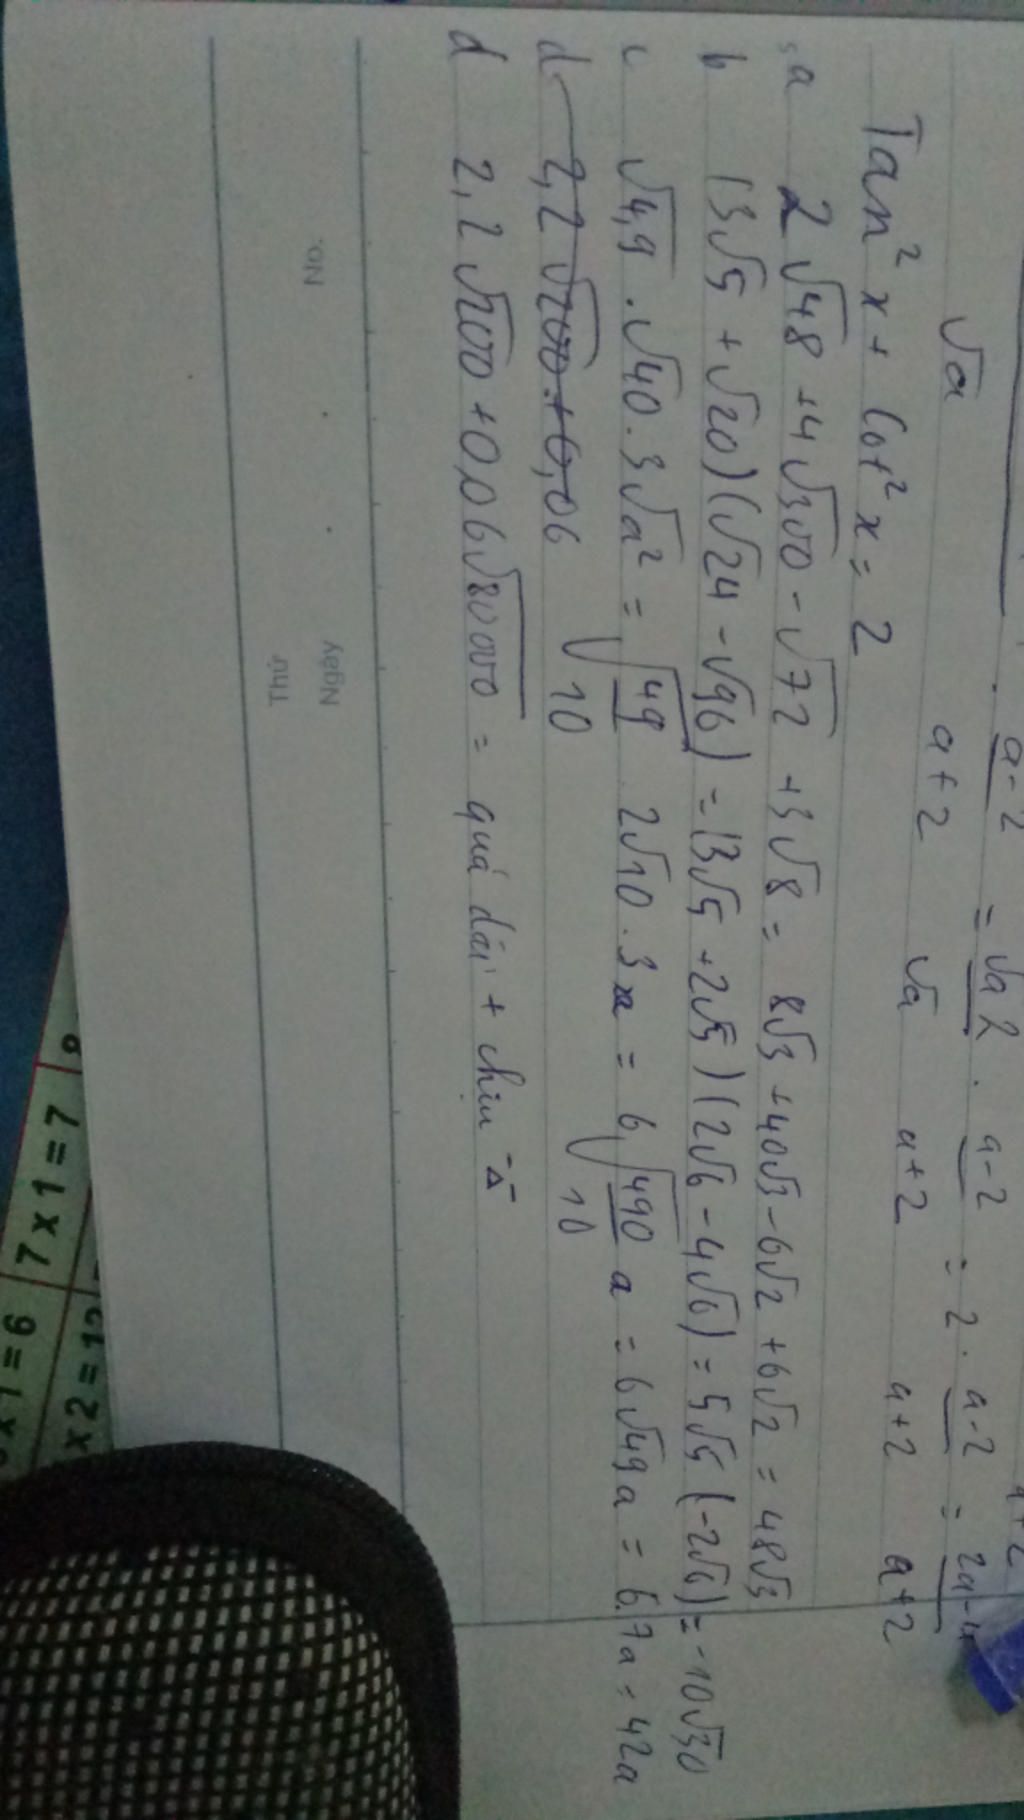 a-2 = √a 2 . a-2 = 2 . a-2 = 2a-4
√a a+2 √a a+2 a+2 a+2
Tan² x + Cot² x = 2
a 2√48 + 4√300 - √72 + 3√8 = 8√3 + 40√3 - 6√2 + 6√2 = 48√3
b (3√5 + √20)(√24 - √96) = (3√5 + 2√5)(2√6 - 4√6) = 5√5 (-2√6) = -10√30
c √4,9 . √40 . 3√a² = √49/10 2√10 . 3a = 6√490/10 a = 6√49 a = 6.7a = 42a
d 2,2√200 + 0,06
d 2,2√200 + 0,06√80000 = quá dài + chịu
No.
Ngày
Thứ
7 x 1 = 7
x 1 = 6
x 2 = 12